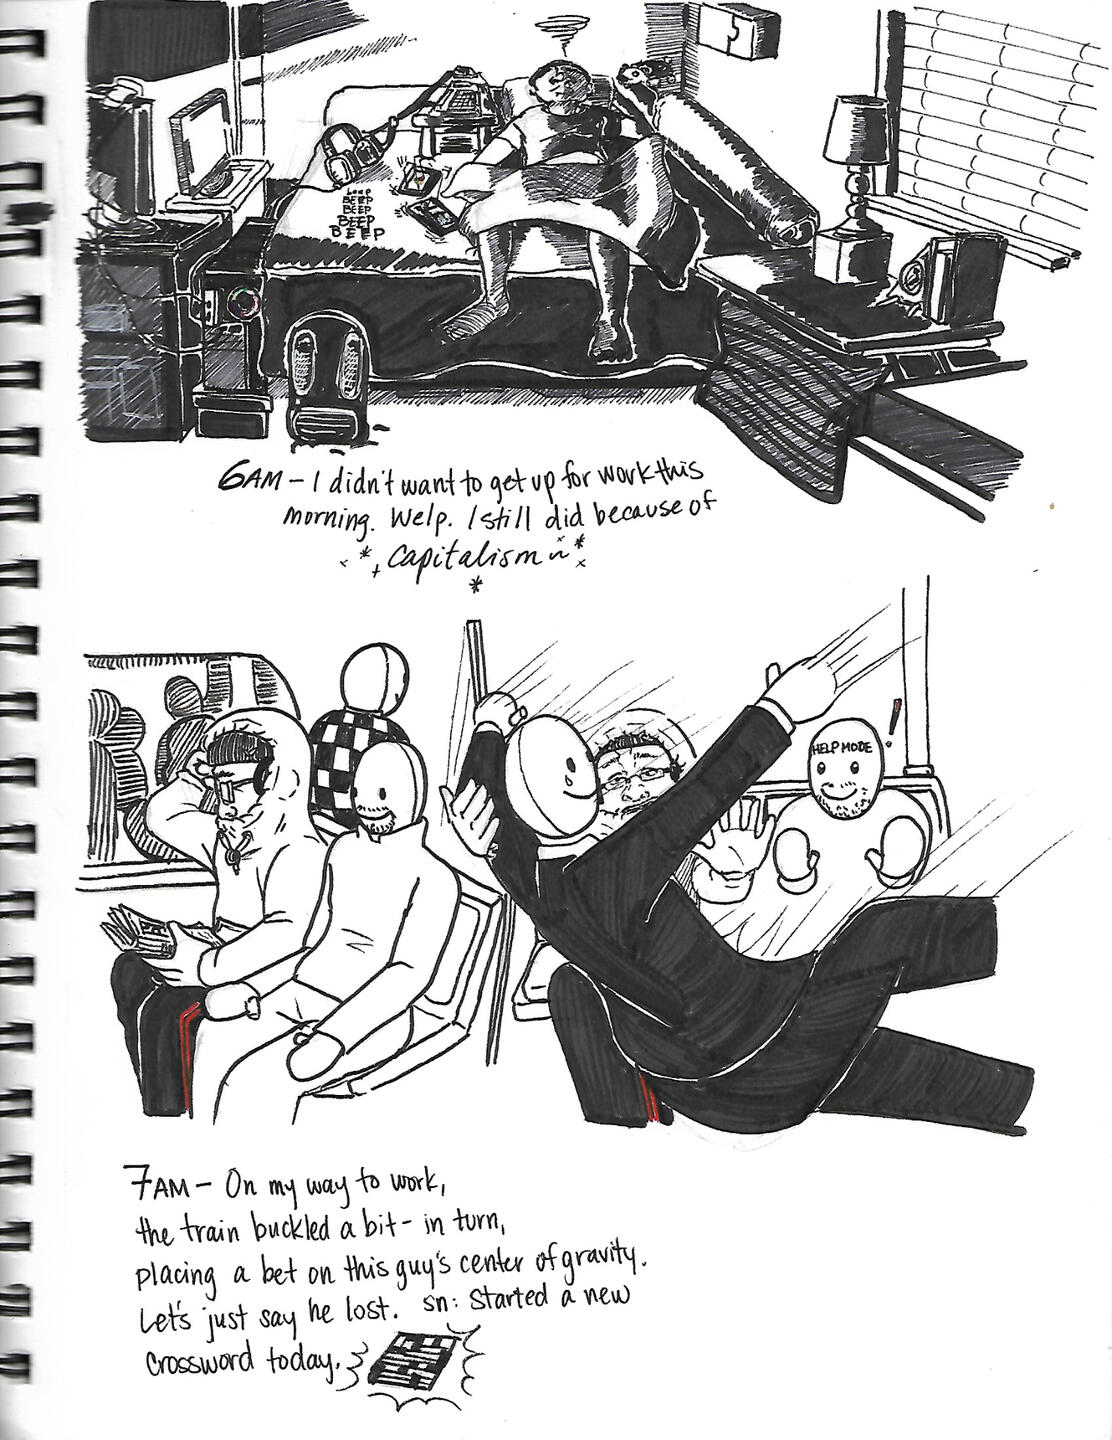 beep
BEEP
BEEP
BEEP
BEEP
6AM – I didn't want to get up for work this
morning. Welp. I still did because of
capitalism~
HELP MODE
!
7AM – On my way to work,
the train buckled a bit – in turn,
placing a bet on this guy's center of gravity.
Let's just say he lost. sn: started a new
crossword today.